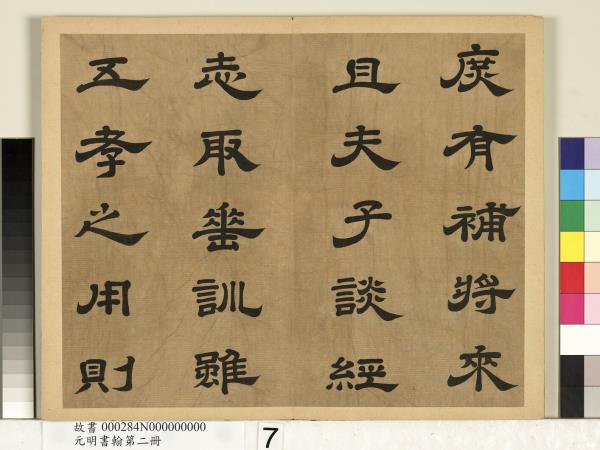 庶有補將來
且夫子談經
志取垂訓雖
五孝之用則
故書 000284N000000000
元明書翰第二冊
7